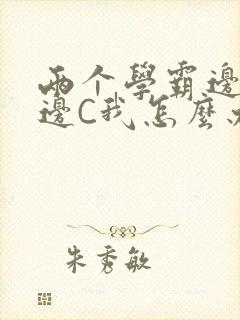 两个學霸邊
邊C我怎麼
朱秀敏